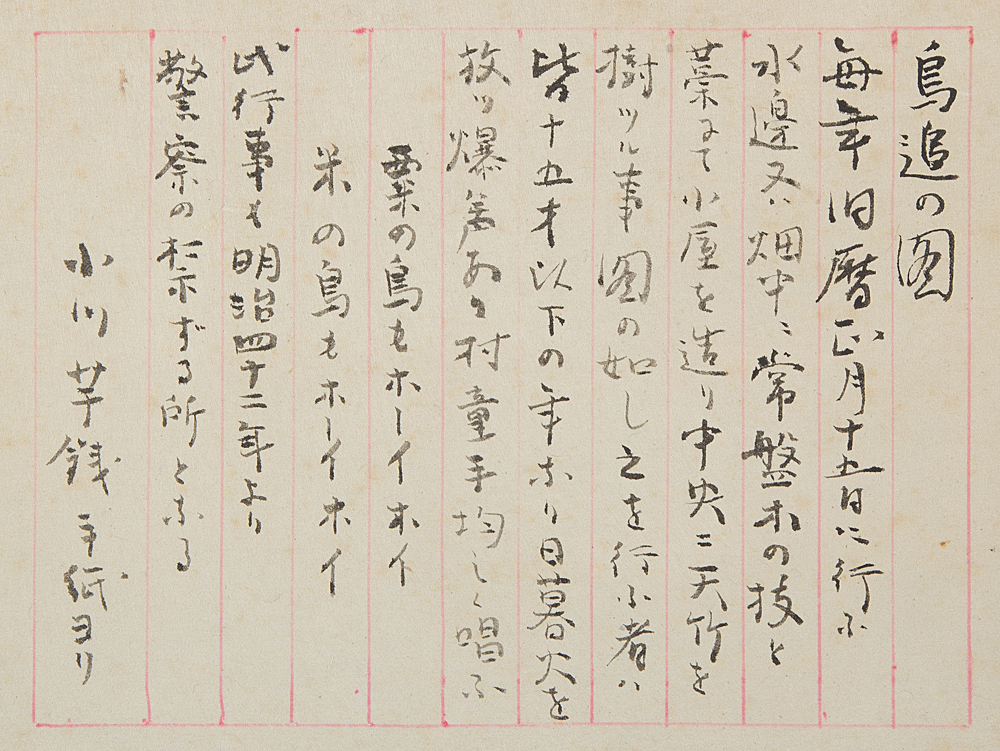 鳥追の図
毎年旧暦正月十五日に行ふ
水邊又ハ畑中ニ常盤木の枝と
藁にて小屋を造り中央ニ天竹を
樹ツル事図の如し之を行ふ者ハ
皆十五才以下の年なり日暮火を
放ツ爆声あり村童手均しく唱ふ
粟の鳥もホーイホイ
米の鳥もホーイホイ
此行事も明治四十二年より
警察の禁ずる所となる
小川芋銭手紙ヨリ